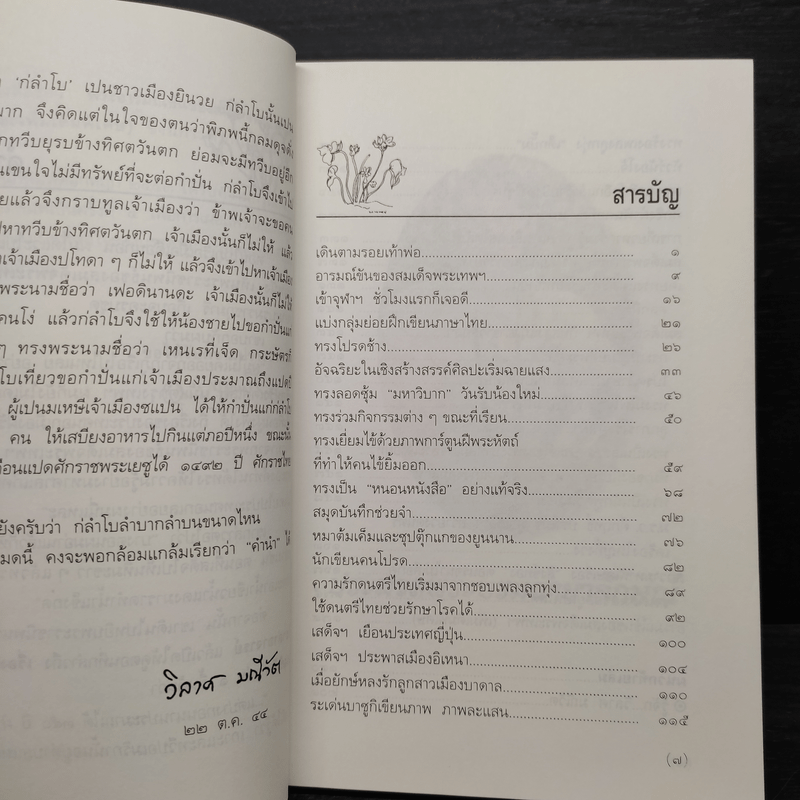 'ก่ลำโบ' เปนชาวเมืองยินวย ก่ลำโบนั้นเปน
จึงคิดแต่ในใจของตนว่าพิภพนี้กลมดุจ
ทวีบยุรบข้างทิศตวันตก ย่อมจะมีทวีบอยู่อีก
เขนใจไม่มีทรัพย์ที่จะต่อกำปั่น ก่ลำโบจึงเข้าไป
แล้วจึงกราบทูลเจ้าเมืองว่า ข้าพเจ้าจะขอ
หาทวีบข้างทิศตวันตก เจ้าเมืองนั้นก็ไม่ให้ แล้ว
เจ้าเมืองปโทดา ๆ ก็ไม่ให้ แล้วจึงเข้าไปหาเจ้าเมือง
พระนามชื่อว่า เฟอดินานดะ เจ้าเมืองนั้นก็ไม่ให้
คนโง่ แล้วก่ลำโบจึงใช้ให้น้องชายไปขอกำปั่นแก่
ๆ ทรงพระนามชื่อว่า เหนเรที่เจ็ด กระษัตร
โบเที่ยวขอกำปั่นแก่เจ้าเมืองประมาณถึงแปดปี
ผู้เปนมเหษีเจ้าเมืองซแปน ได้ให้กำปั่นแก่ก่ลำโบ
คน ให้เสบียงอาหารไปกินแต่ภอปีหนึ่ง ขณะนั้น
เดือนแปดศักราชพระเยซูได้ ๑๔๙๒ ปี ศักราชไทย
ยังครับว่า ก่ลำโบลำบากลำบนขนาดไหน
หมดนี้ คงจะพอกล้อมแกล้มเรียกว่า "คำนำ" ได้
วิลาศ มณีวัต
๒๒ ต.ค. ๔๔
สารบัญ
เดินตามรอยเท้าพ่อ ๑
อารมณ์ขันของสมเด็จพระเทพฯ ๙
เข้าจุฬาฯ ชั่วโมงแรกก็เจอดี ๑๖
แบ่งกลุ่มย่อยฝึกเขียนภาษาไทย ๒๑
ทรงโปรดช้าง ๒๖
อัจฉริยะในเชิงสร้างสรรค์ศิลปะเริ่มฉายแสง ๓๓
ทรงลอดซุ้ม "มหาวิบาก" วันรับน้องใหม่ ๔๖
ทรงร่วมกิจกรรมต่าง ๆ ขณะที่เรียน ๕๐
ทรงเยี่ยมไข้ด้วยภาพการ์ตูนฝีพระหัตถ์
ที่ทำให้คนไข้ยิ้มออก ๕๙
ทรงเป็น "หนอนหนังสือ" อย่างแท้จริง ๖๘
สมุดบันทึกช่วยจำ ๗๒
หมาต้มเค็มและซุปตุ๊กแกของยูนนาน ๗๖
นักเขียนคนโปรด ๘๒
ความรักดนตรีไทยเริ่มมาจากชอบเพลงลูกทุ่ง ๘๙
ใช้ดนตรีไทยช่วยรักษาโรคได้ ๙๒
เสด็จฯ เยือนประเทศญี่ปุ่น ๑๐๐
เสด็จฯ ประพาสเมืองอิเหนา ๑๐๔
เมื่อยักษ์หลงรักลูกสาวเมืองบาดาล ๑๑๐
ระเด่นบาซูกิเขียนภาพ ภาพละแสน ๑๑๕
(๗)